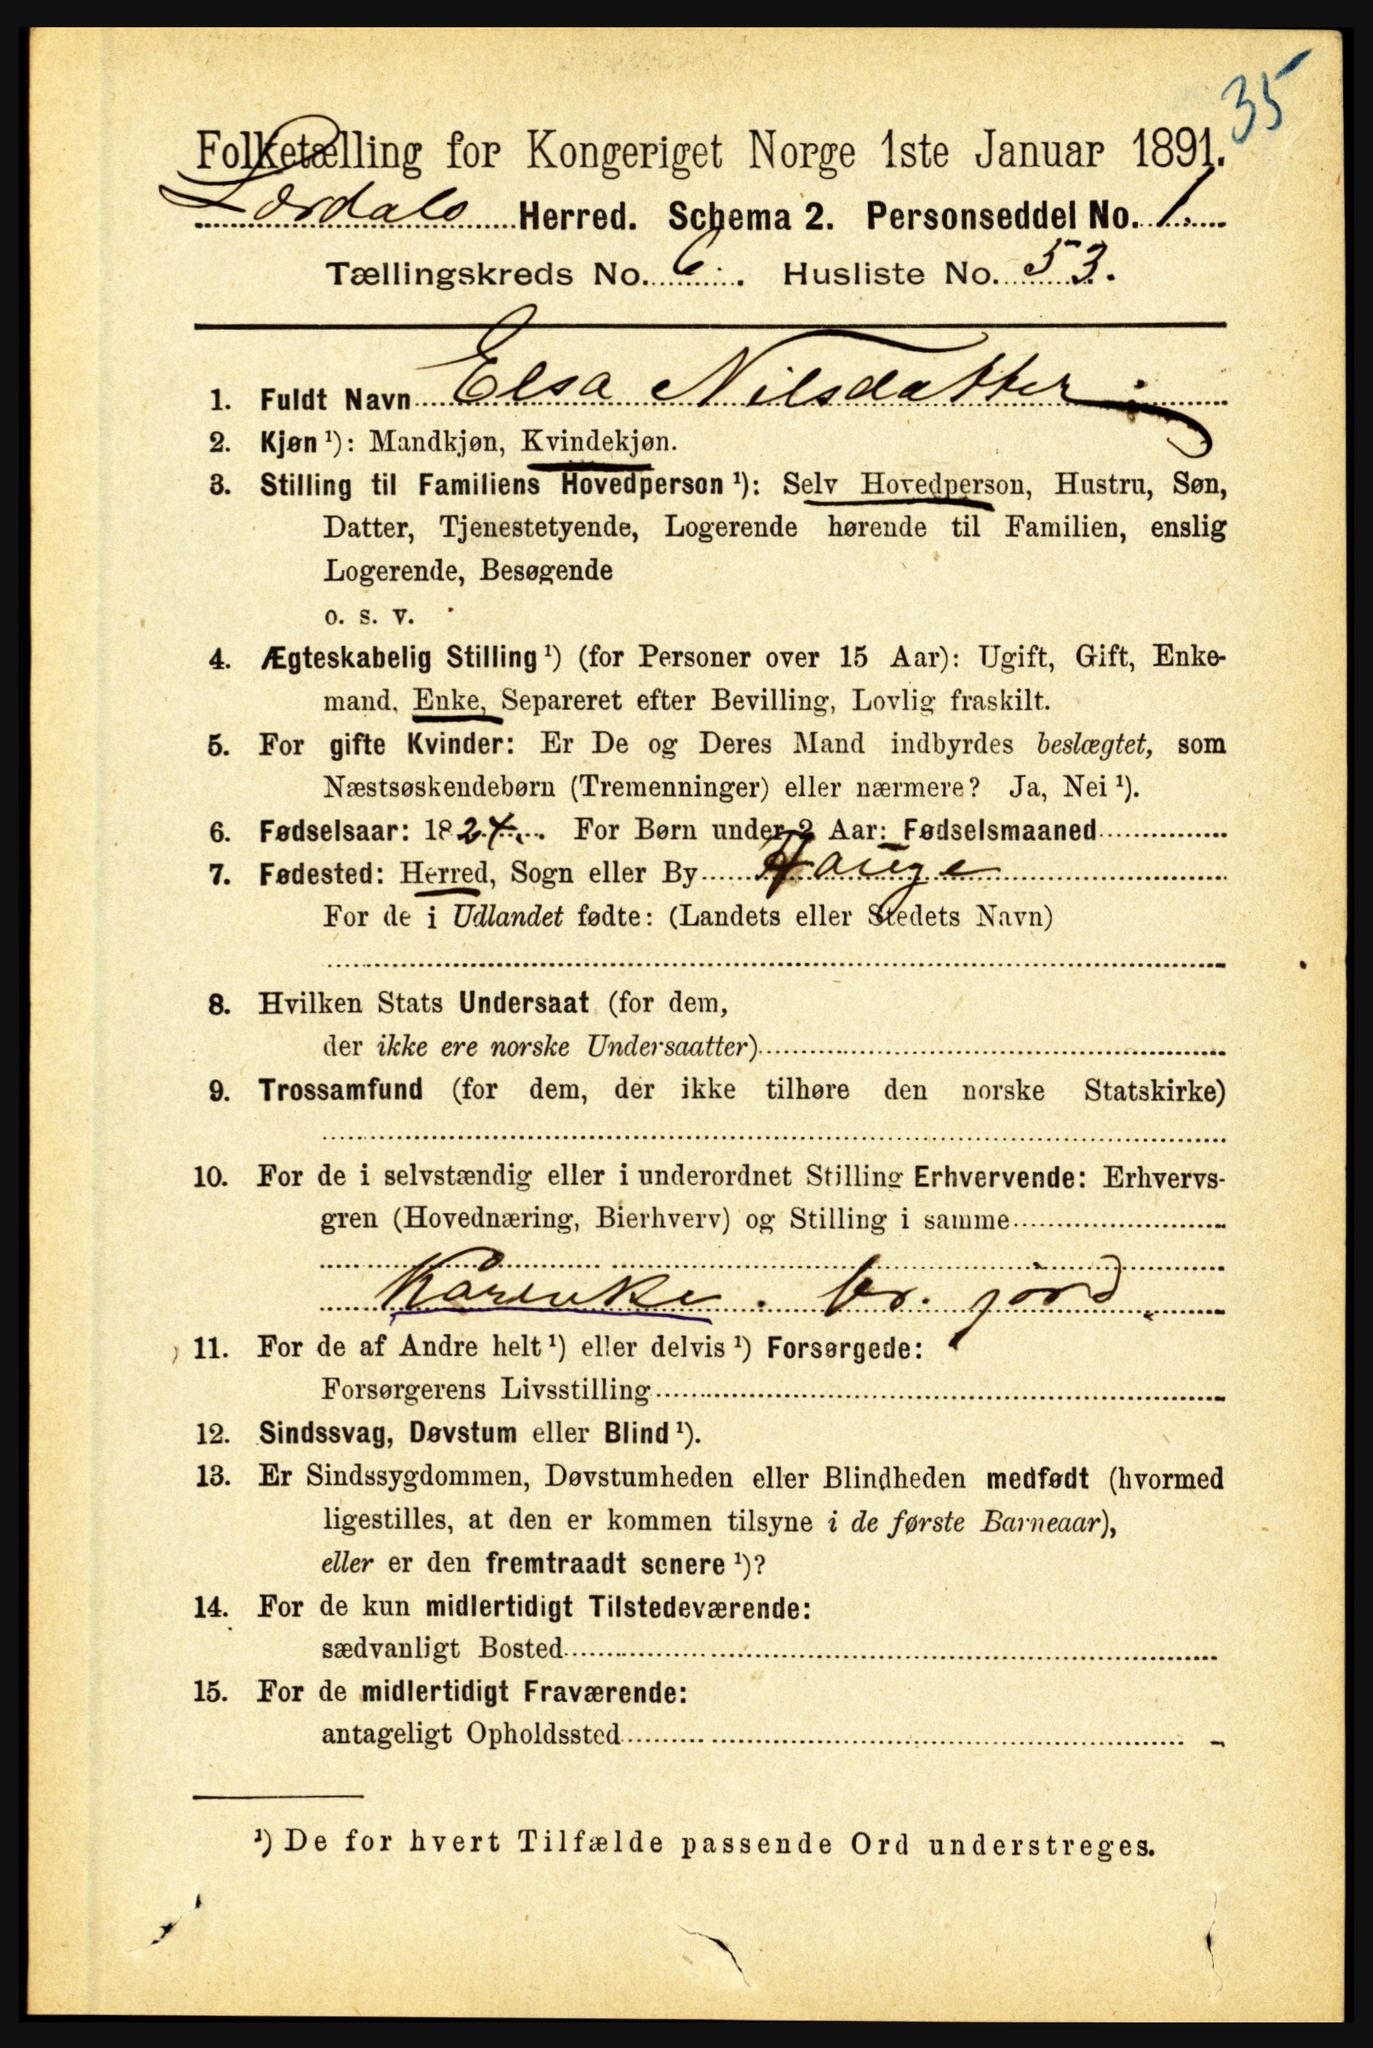 35
Folketælling for Kongeriget Norge 1ste Januar 1891.
Lærdals Herred. Schema 2. Personseddel No. 1.
Tællingskreds No. 6. Husliste No. 53.
1. Fuldt Navn Elsa Nilsdatter
2. Kjøn ¹): Mandkjøn, Kvindekjøn.
3. Stilling til Familiens Hovedperson ¹): Selv Hovedperson, Hustru, Søn,
Datter, Tjenestetyende, Logerende hørende til Familien, enslig
Logerende, Besøgende
o. s. v.
4. Ægteskabelig Stilling ¹) (for Personer over 15 Aar): Ugift, Gift, Enke-
mand, Enke, Separeret efter Bevilling, Lovlig fraskilt.
5. For gifte Kvinder: Er De og Deres Mand indbyrdes beslægtet, som
Næstsøskendebørn (Tremenninger) eller nærmere? Ja, Nei ¹).
6. Fødselsaar: 1824. For Børn under 2 Aar: Fødselsmaaned
7. Fødested: Herred, Sogn eller By Hauge
For de i Udlandet fødte: (Landets eller Stedets Navn)
8. Hvilken Stats Undersaat (for dem,
der ikke ere norske Undersaatter)
9. Trossamfund (for dem, der ikke tilhøre den norske Statskirke)
10. For de i selvstændig eller i underordnet Stilling Erhvervende: Erhvervs-
gren (Hovednæring, Bierhverv) og Stilling i samme
Kårenke. br. jord.
11. For de af Andre helt ¹) eller delvis ¹) Forsørgede:
Forsørgerens Livsstilling
12. Sindssvag, Døvstum eller Blind ¹).
13. Er Sindssygdommen, Døvstumheden eller Blindheden medfødt (hvormed
ligestilles, at den er kommen tilsyne i de første Barneaar),
eller er den fremtraadt senere ¹)?
14. For de kun midlertidigt Tilstedeværende:
sædvanligt Bosted
15. For de midlertidigt Fraværende:
antageligt Opholdssted
¹) De for hvert Tilfælde passende Ord understreges.